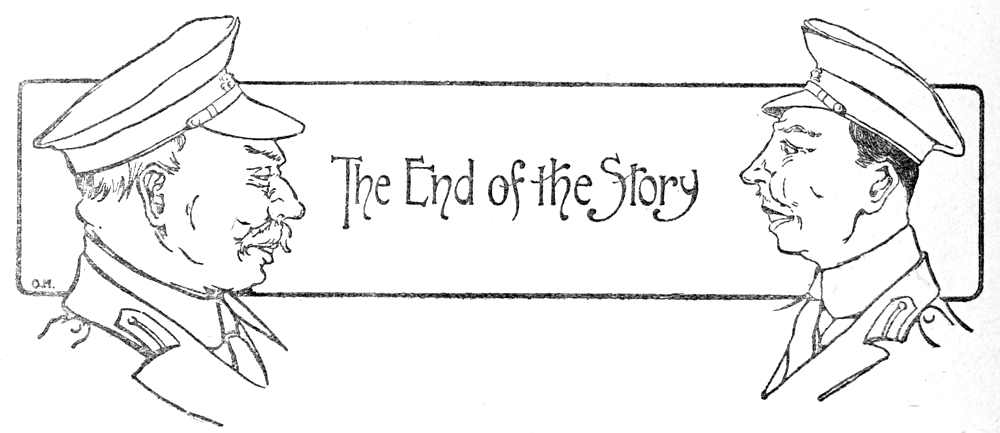 The End of the Story
O.M.